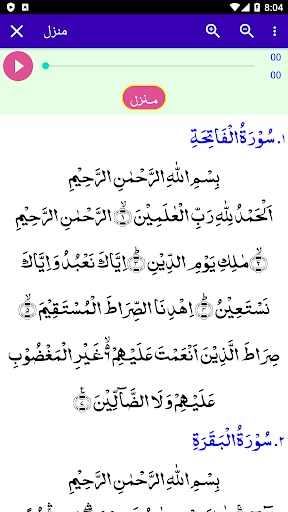 8:04
منزل
00
00
منزل
١. سُوْرَةُ الْفَاتِحَةِ
بِسْمِ اللهِ الرَّحْمٰنِ الرَّحِيْمِ
اَلْحَمْدُ لِلّٰهِ رَبِّ الْعٰلَمِيْنَ ۝١ الرَّحْمٰنِ الرَّحِيْمِ
۝٢ مٰلِكِ يَوْمِ الدِّيْنِ ۝٣ اِيَّاكَ نَعْبُدُ وَاِيَّاكَ
نَسْتَعِيْنُ ۝٤ اِهْدِنَا الصِّرَاطَ الْمُسْتَقِيْمَ ۝٥
صِرَاطَ الَّذِيْنَ اَنْعَمْتَ عَلَيْهِمْ ۝٦ غَيْرِ الْمَغْضُوْبِ
عَلَيْهِمْ وَلَا الضَّآلِّيْنَ ۝٧
٢. سُوْرَةُ الْبَقَرَةِ
بِسْمِ اللهِ الرَّحْمٰنِ الرَّحِيْمِ